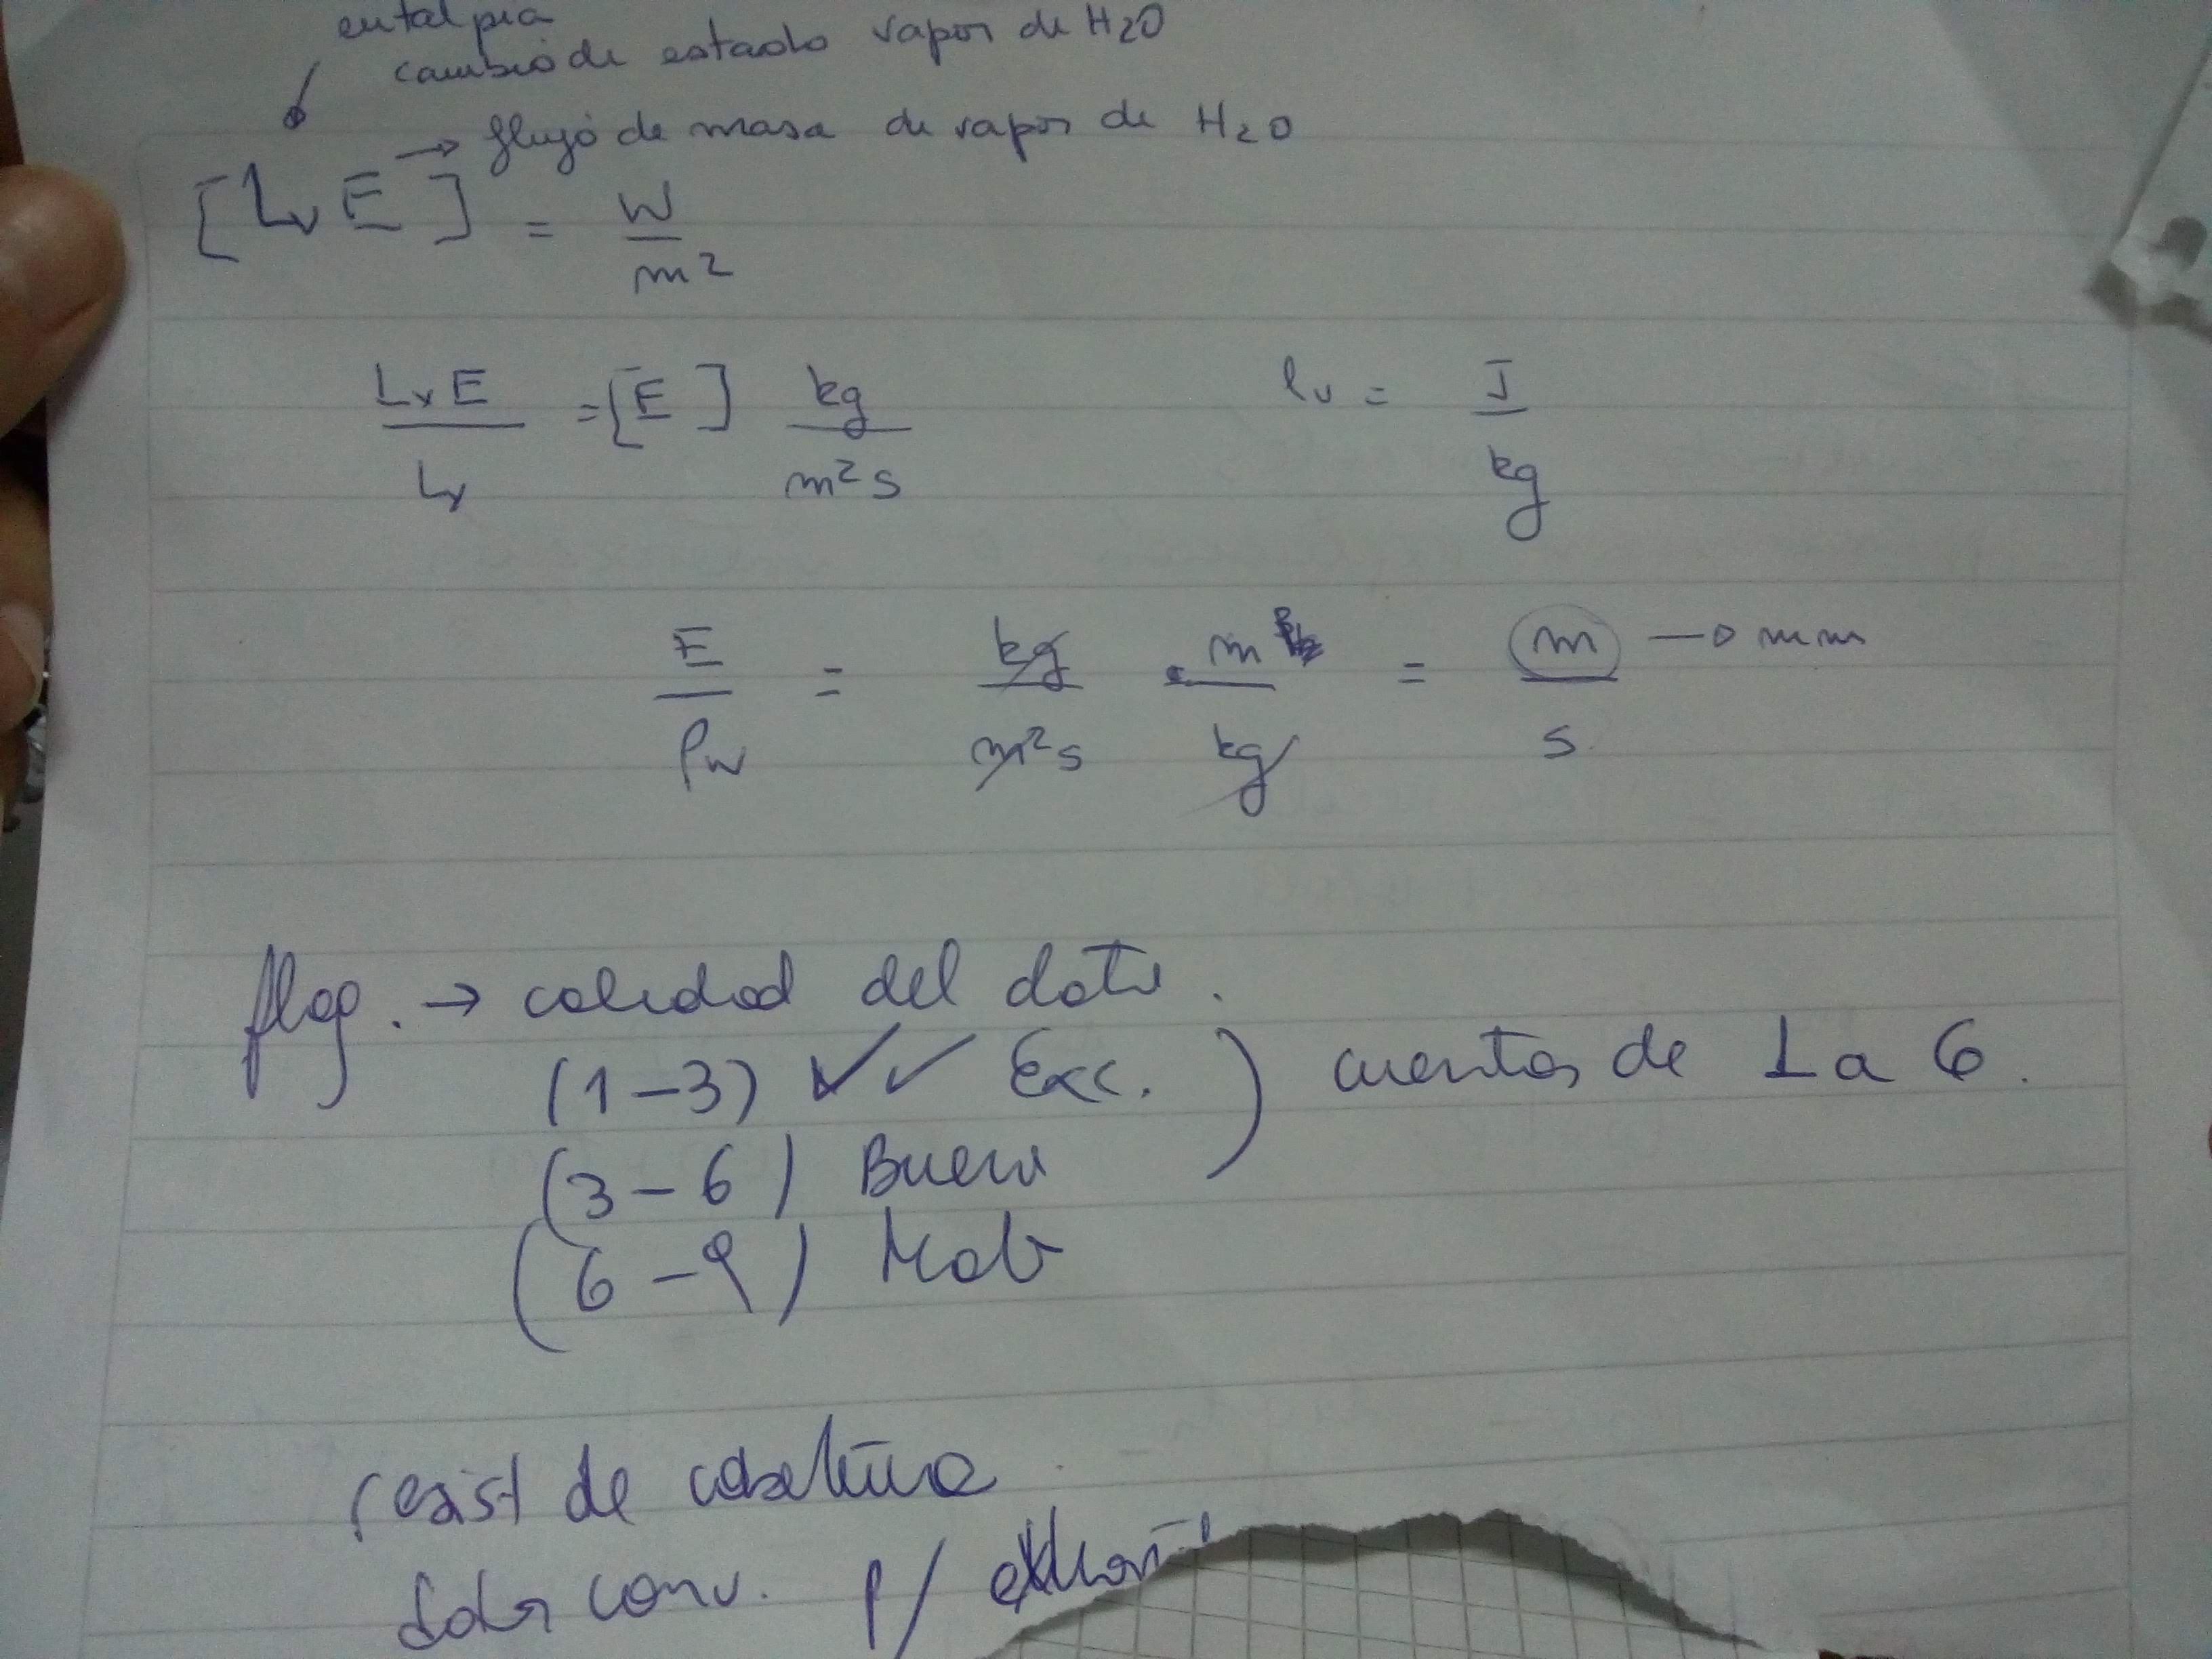 entalpia
cambio de estado vapor de H2O
→ flujo de masa de vapor de H2O
[LvE] = W/m²
LvE/Lv = [E] kg/m²s
lv = J/kg
E/ρw = kg/m²s · m³/kg = m/s → mm
flag. → calidad del dato.
(1-3) ✓✓ Exc. ) cuentas de 1 a 6.
(3-6) Bueno
(6-9) Malo
resist de
conv. p/